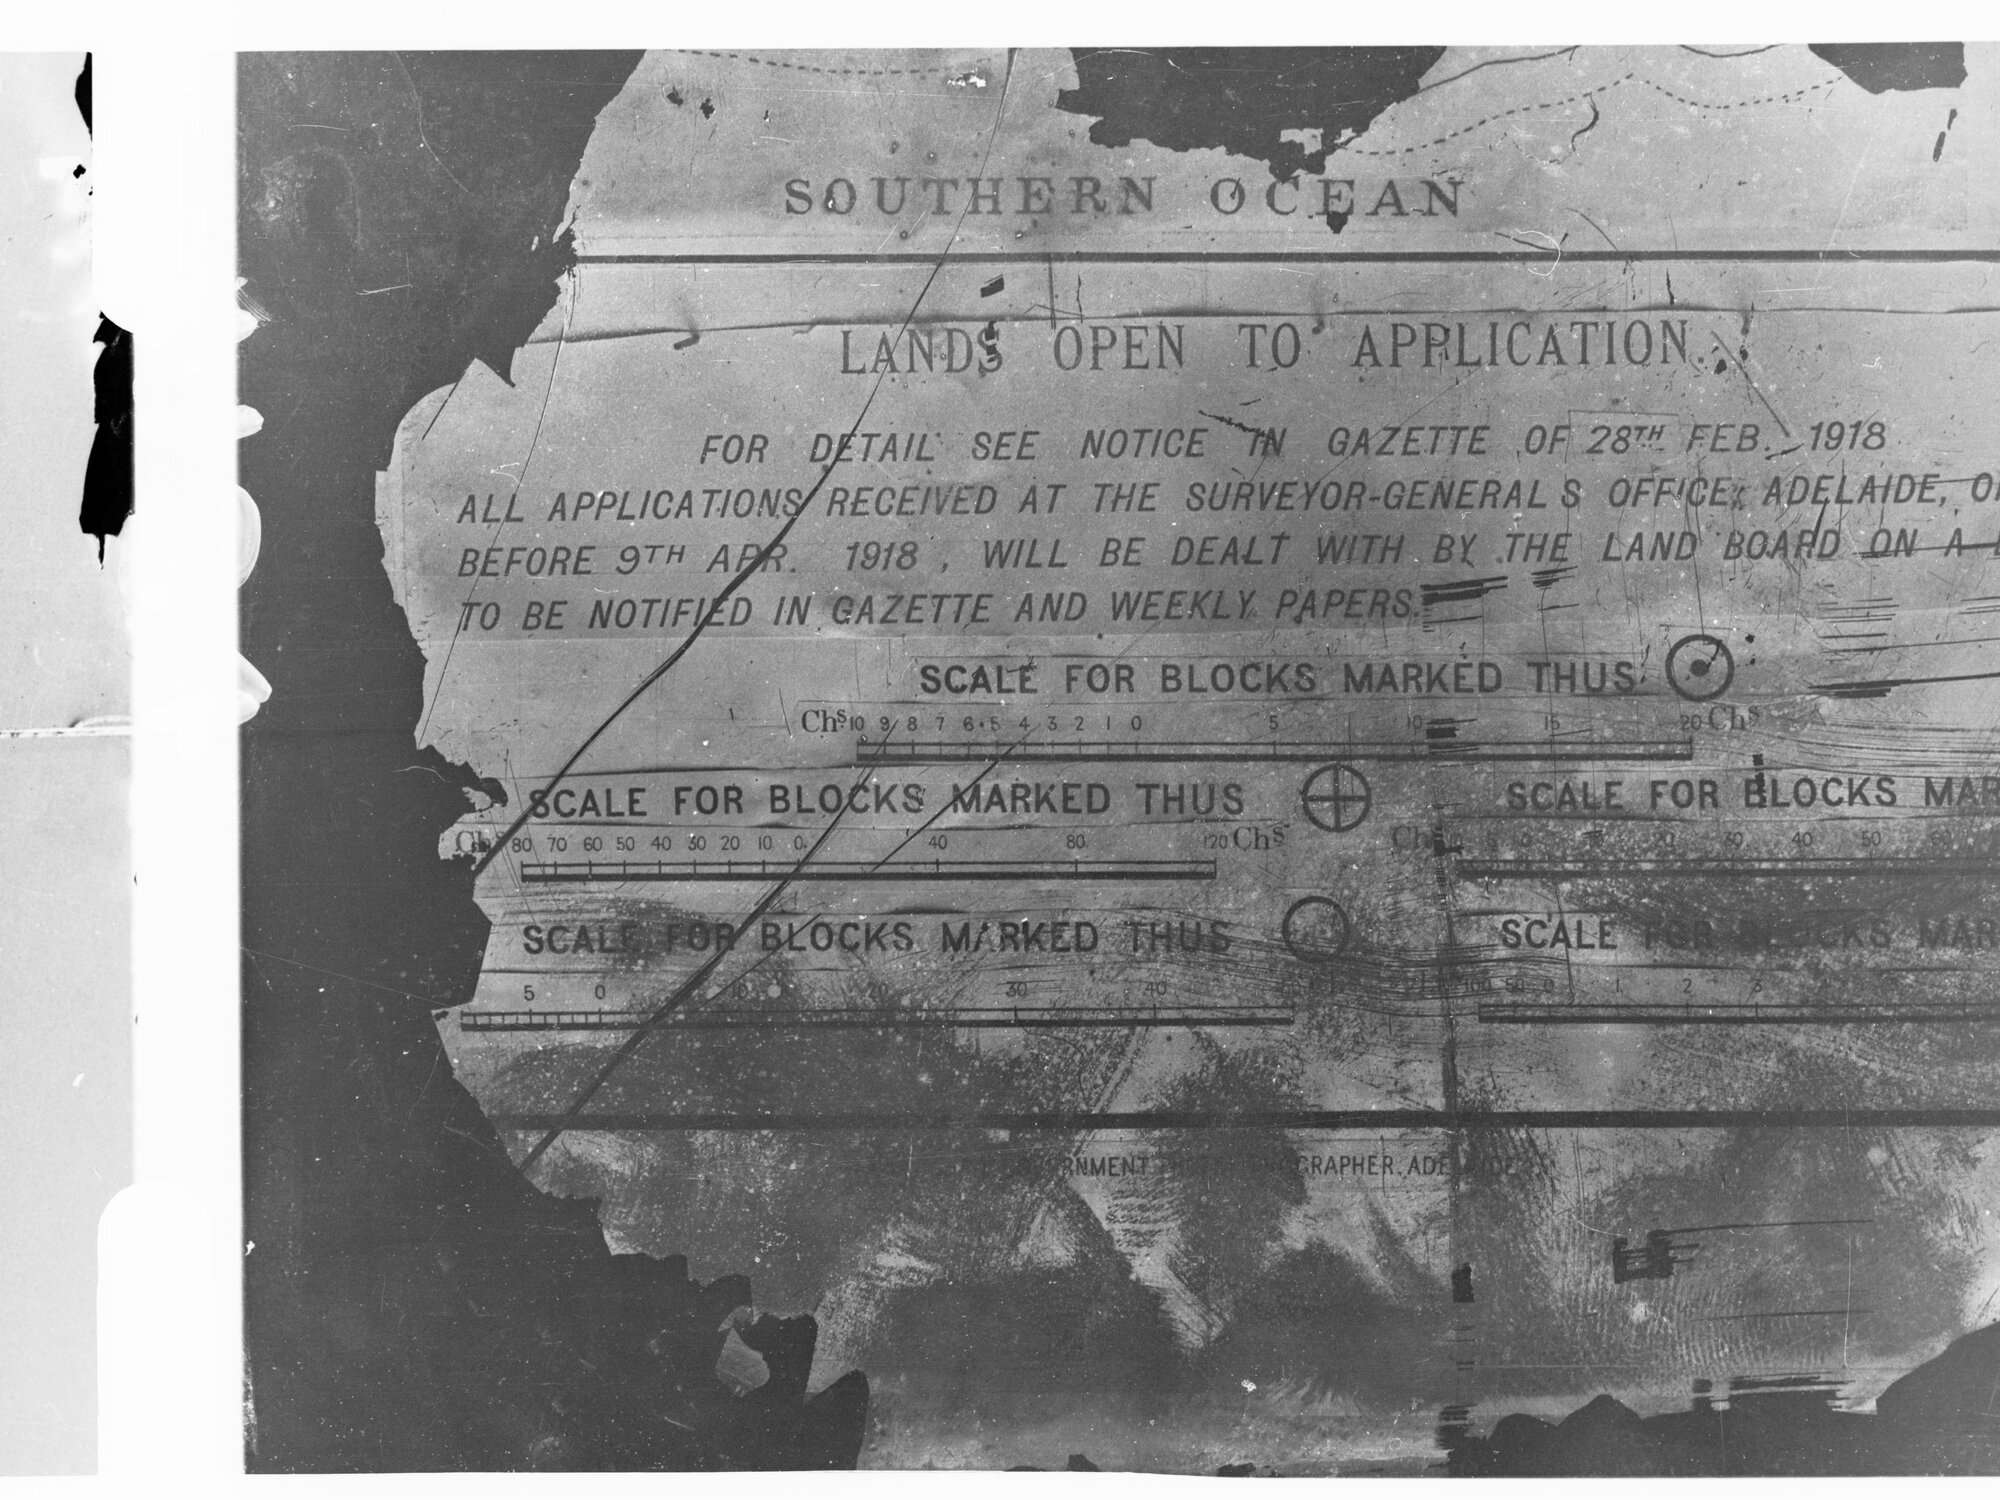 SOUTHERN OCEAN
LANDS OPEN TO APPLICATION.
FOR DETAIL SEE NOTICE IN GAZETTE OF 28TH FEB. 1918
ALL APPLICATIONS RECEIVED AT THE SURVEYOR-GENERAL'S OFFICE, ADELAIDE,
BEFORE 9TH APR. 1918, WILL BE DEALT WITH BY THE LAND BOARD ON A
TO BE NOTIFIED IN GAZETTE AND WEEKLY PAPERS.
SCALE FOR BLOCKS MARKED THUS
Chs 10 9 8 7 6 5 4 3 2 1 0 5 10 15 20 Chs
SCALE FOR BLOCKS MARKED THUS
SCALE FOR BLOCKS
Chs 80 70 60 50 40 30 20 10 0 40 80 120 Chs
5 0 10 20 30 40 50 60
SCALE FOR BLOCKS MARKED THUS
SCALE FOR BLOCKS
5 0 10 20 30 40
100 50 0 1 2 3
GRAPHER, ADELAIDE